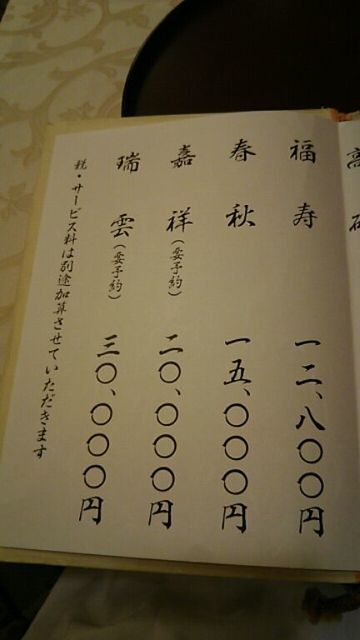 福寿 一二、八〇〇円
春秋 一五、〇〇〇円
嘉祥(要予約) 二〇、〇〇〇円
瑞雲(要予約) 三〇、〇〇〇円
税・サービス料は別途加算させていただきます